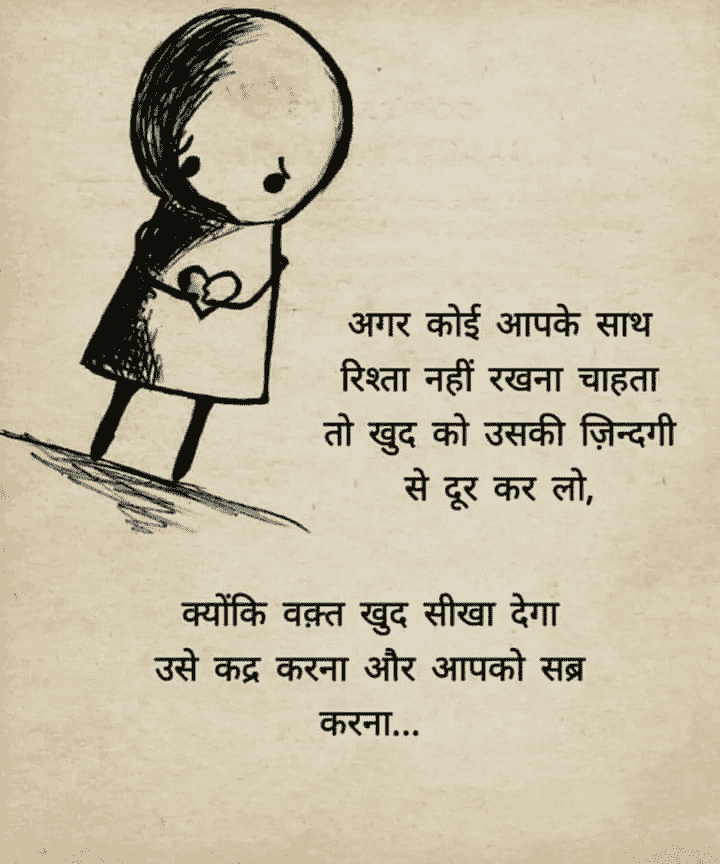 अगर कोई आपके साथ
रिश्ता नहीं रखना चाहता
तो खुद को उसकी ज़िन्दगी
से दूर कर लो,
क्योंकि वक़्त खुद सीखा देगा
उसे कद्र करना और आपको सब्र
करना...